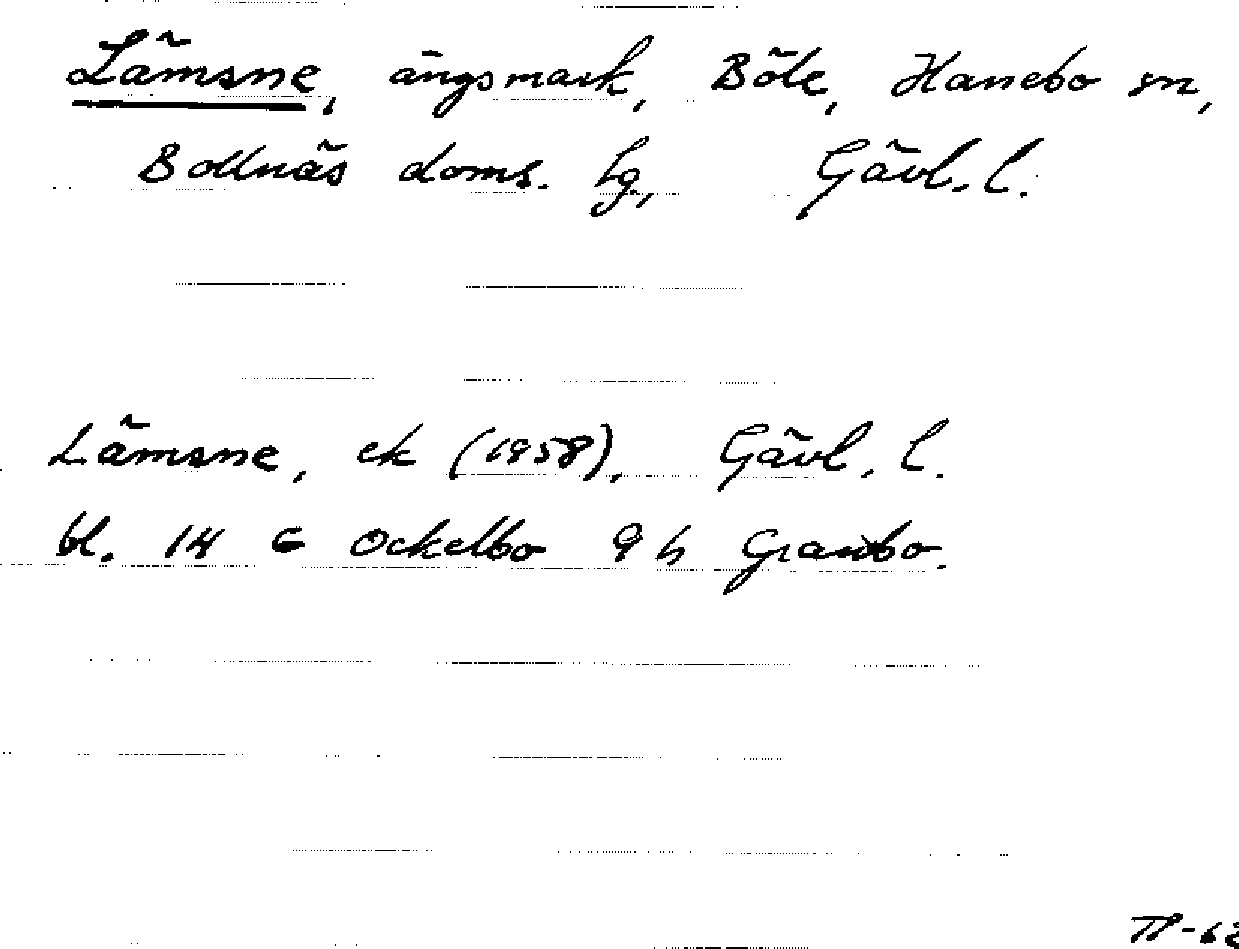 Lämsne, ängsmark, Böle, Hanebo sn,
Bollnäs doms. hg, Gävl. l.
Lämsne, ek (1958), Gävl. l.
bl. 14 G Ockelbo 9 h Granbo.
TP-62